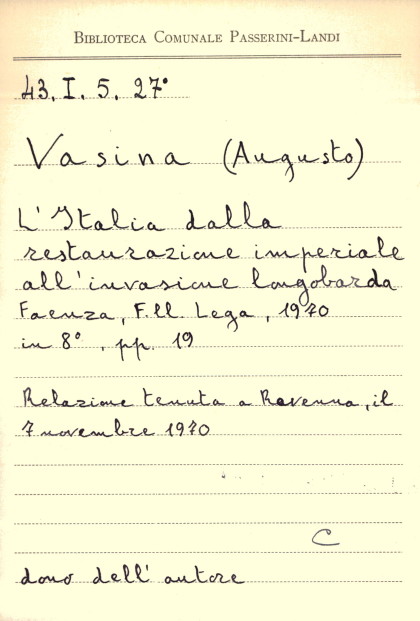 BIBLIOTECA COMUNALE PASSERINI-LANDI
43. I. 5. 27°
Vasina (Augusto)
L'Italia dalla
restaurazione imperiale
all'invasione longobarda
Faenza, F.lli. Lega, 1970
in 8°, pp. 19
Relazione tenuta a Ravenna, il
7 novembre 1970
C
dono dell'autore